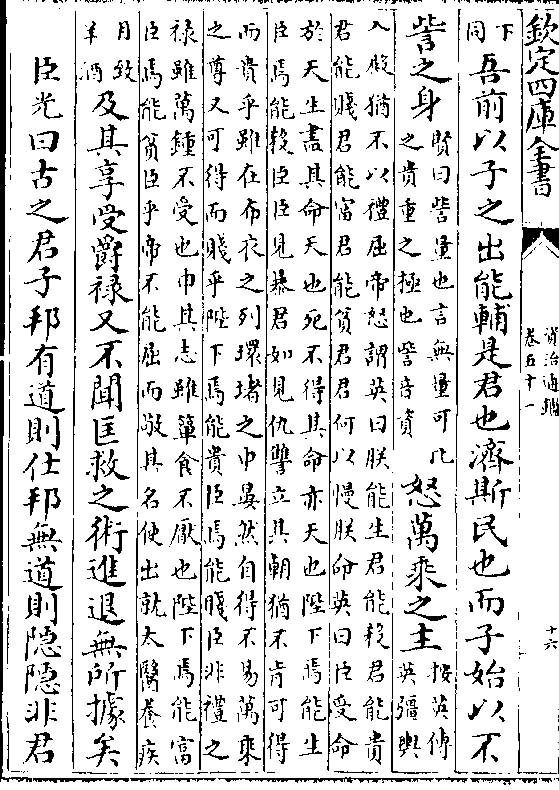 欽定四庫全書
資治通鑑
卷五十一
十六
下
同
吾前以子之出能輔是君也濟斯民也而子始以不
訾之身
賢曰訾量也言無量可比
之貴重之極也訾音資
怒萬乘之主
按英傳
英彊輿
入殿猶不以禮屈帝怒謂英曰朕能生君能殺君能貴
君能賤君能富君能貧君君何以慢朕命英曰臣受命
於天生盡其命天也死不得其命亦天也陛下焉能生
臣焉能殺臣臣見暴君如見仇讐立其朝猶不肯可得
而貴乎雖在布衣之列環堵之中晏然自得不易萬乗
之尊又可得而賤乎陛下焉能貴臣焉能賤臣非禮之
禄雖萬鍾不受也申其志雖簞食不厭也陛下焉能富
臣焉能貧臣乎帝不能屈而敬其名使出就太醫養疾
月致
羊酒
及其享受爵禄又不聞匡救之術進退無所據矣
臣光曰古之君子邦有道則仕邦無道則隠隠非君